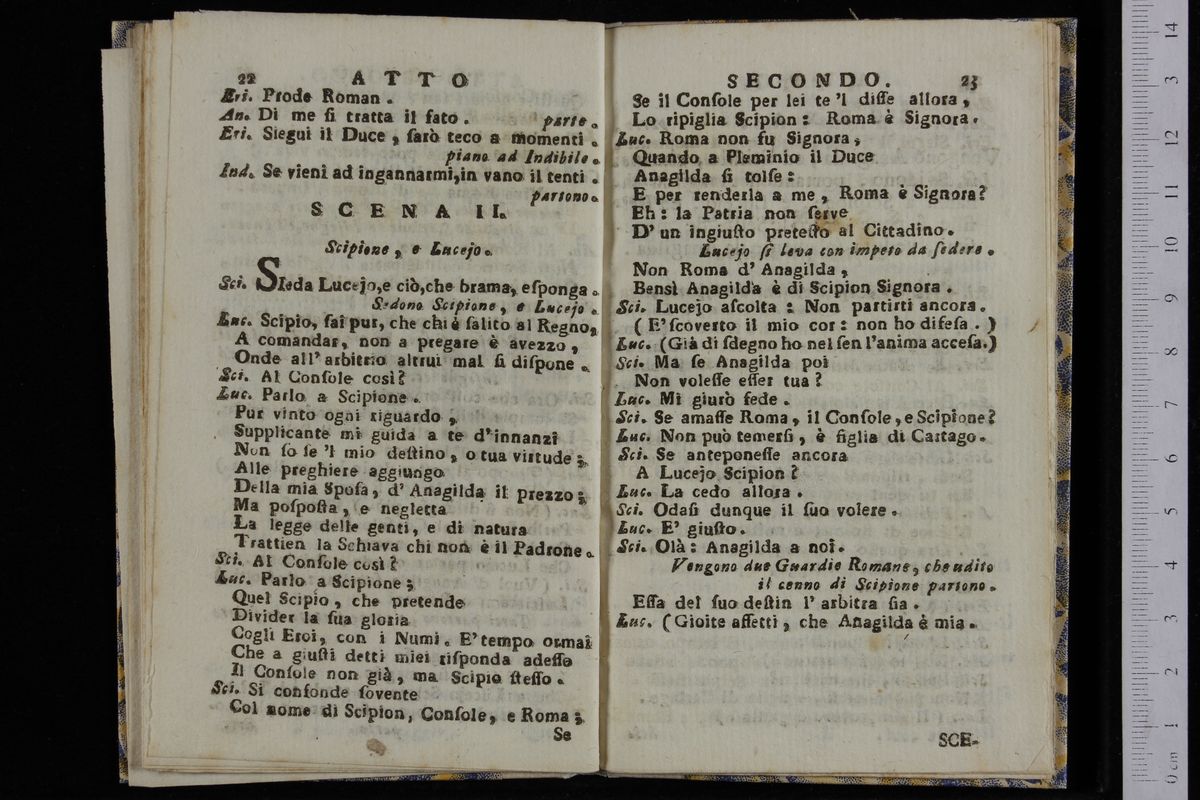 22 ATTO
Eri. Prode Roman.
An. Di me ſi tratta il fato. parte.
Eri. Siegui il Duce, ſarò teco a momenti.
piano ad Indibile.
Ind. Se vieni ad ingannarmi, in vano il tenti.
partono.
SCENA II.
Scipione, e Lucejo.
Sci. SIeda Lucejo, e ciò, che brama, eſponga.
Sedono Scipione, e Lucejo.
Luc. Scipio, ſai pur, che chi è ſalito al Regno,
A comandar, non a pregare è avezzo,
Onde all' arbitrio altrui mal ſi diſpone.
Sci. Al Conſole così?
Luc. Parlo a Scipione.
Pur vinto ogni riguardo,
Supplicante mi guida a te d'innanzi
Non ſo ſe 'l mio deſtino, o tua virtude;
Alle preghiere aggiungo
Della mia Spoſa, d' Anagilda il prezzo;
Ma poſpoſta, e negletta
La legge delle genti, e di natura
Trattien la Schiava chi non è il Padrone.
Sci. Al Conſole così?
Luc. Parlo a Scipione;
Quel Scipio, che pretende
Divider la ſua gloria
Cogli Eroi, con i Numi. E' tempo ormai
Che a giuſti detti miei riſponda adeſſo
Il Conſole non già, ma Scipio ſteſſo.
Sci. Si confonde ſovente
Col nome di Scipion, Conſole, e Roma;
Se
SECONDO. 23
Se il Conſole per lei te 'l diſſe allora,
Lo ripiglia Scipion: Roma è Signora.
Luc. Roma non fu Signora,
Quando a Pleminio il Duce
Anagilda ſi tolſe:
E per renderla a me, Roma è Signora?
Eh: la Patria non ſerve
D' un ingiuſto preteſto al Cittadino.
Lucejo ſi leva con impeto da ſedere.
Non Roma d' Anagilda,
Bensì Anagilda è di Scipion Signora.
Sci. Lucejo aſcolta: Non partirti ancora.
( E' ſcoverto il mio cor: non ho difeſa. )
Luc. (Già di ſdegno ho nel ſen l'anima acceſa.)
Sci. Ma ſe Anagilda poi
Non voleſſe eſſer tua?
Luc. Mi giurò fede.
Sci. Se amaſſe Roma, il Conſole, e Scipione?
Luc. Non può temerſi, è figlia di Cartago.
Sci. Se anteponeſſe ancora
A Lucejo Scipion?
Luc. La cedo allora.
Sci. Odaſi dunque il ſuo volere.
Luc. E' giuſto.
Sci. Olà: Anagilda a noi.
Vengono due Guardie Romane, che udito
il cenno di Scipione partono.
Eſſa del ſuo deſtin l' arbitra ſia.
Luc. (Gioite affetti, che Anagilda è mia.
SCE-
14
13
12
11
10
9
8
7
6
5
4
3
2
1
0 cm